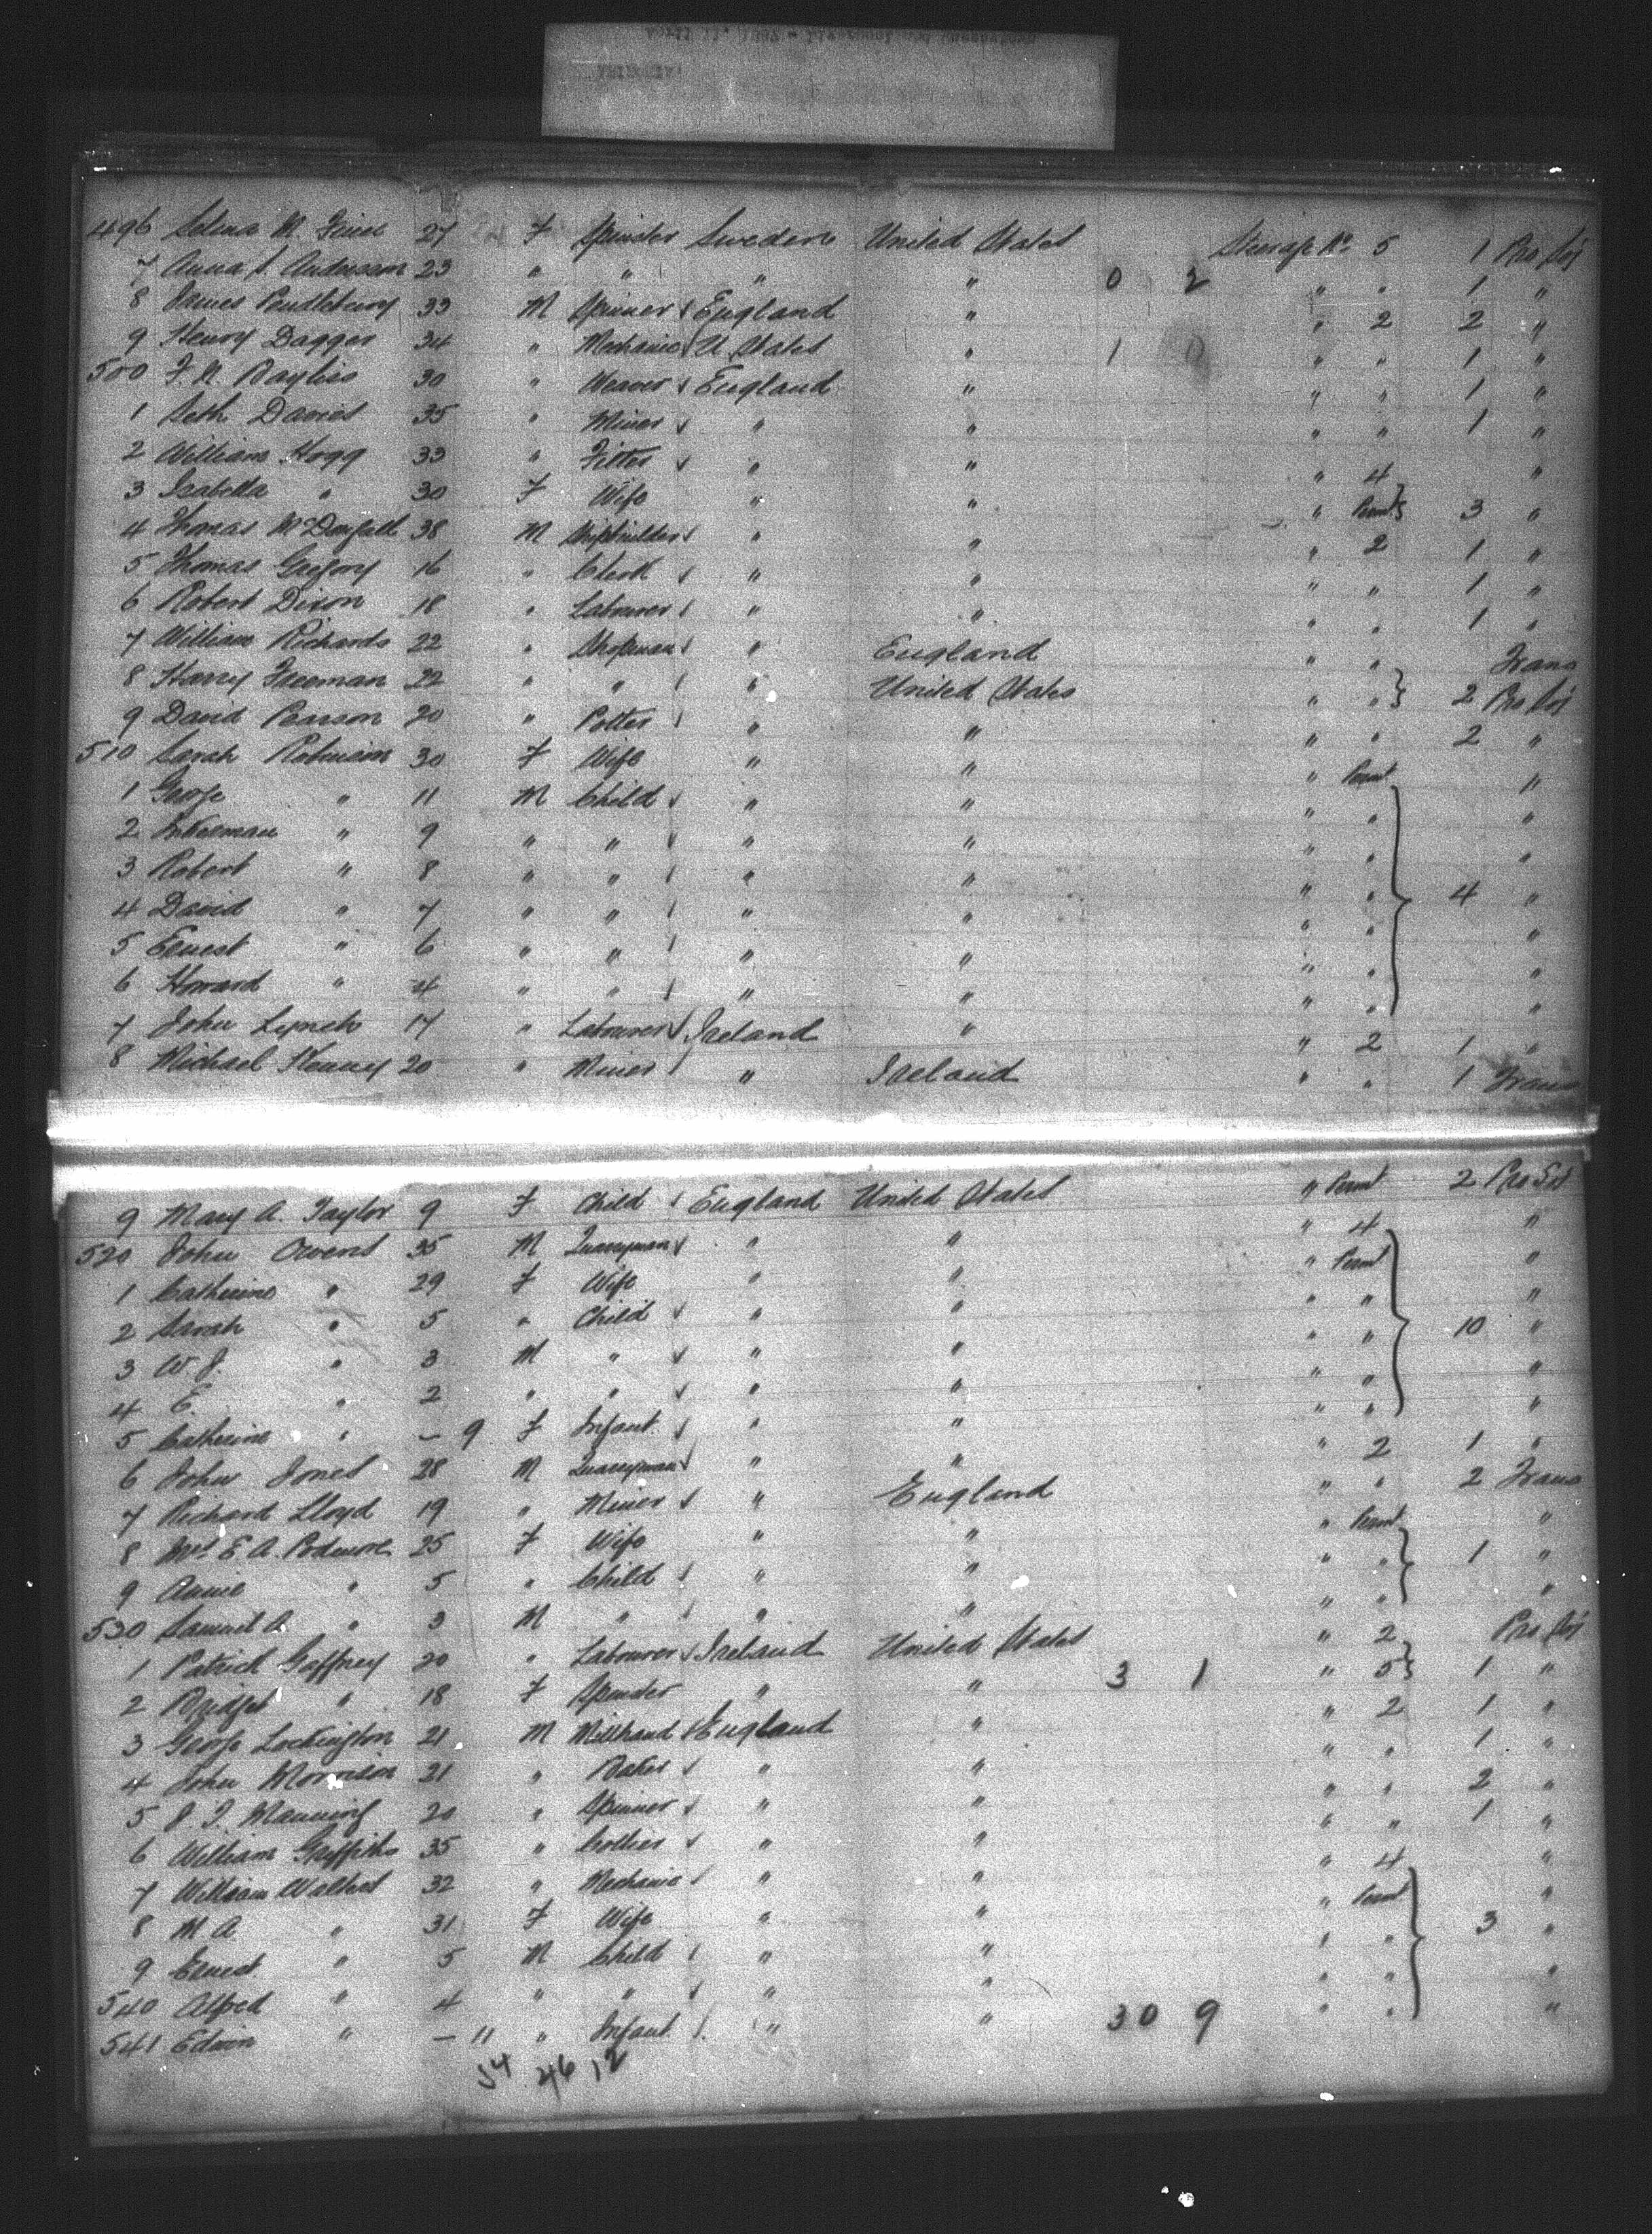 496 Selma M. 27 F Spinster Sweden United States Steerage No 5 1 Pro Soj
7 Anna S. Anderson 23 " " " " 0 2 " " 1 "
8 James Pendlebury 33 M Spinner England " " 2 2 "
9 Henry Dagger 34 " Mechanic U. States " 1 " " 1 "
500 F. N. Bayliss 30 " Weaver England " " " 1 "
1 Seth Davies 35 " Miner " " " " 1 "
2 William Hogg 33 " Fitter " " " 4 "
3 Isabella " 30 F Wife " " " Permt 3 "
4 Thomas McDougall 38 M Shipbuilder " " " 2 1 "
5 Thomas Gregory 16 " Clerk " " " " 1 "
6 Robert Dixon 18 " Labourer " " " " 1 "
7 William Richards 22 " Shopman " England " " Trans
8 Harry Freeman 22 " " " United States " " 2 Pro Soj
9 David Pearson 20 " Potter " " " " 2 "
510 Sarah Robinson 30 F Wife " " " Permt "
1 George " 11 M Child " " " " "
2 Inkerman " 9 " " " " " " "
3 Robert " 8 " " " " " " 4 "
4 David " 7 " " " " " " "
5 Ernest " 6 " " " " " " "
6 Howard " 4 " " " " " " "
7 John Lynch 17 " Labourer Ireland " " 2 1 "
8 Michael Kenny 20 " Miner " Ireland " " 1 Trans
9 Mary A. Taylor 9 F Child England United States " Permt 2 Pro Soj
520 John Owens 35 M Quarryman " " " 4 "
1 Catherine " 29 F Wife " " " Permt "
2 Sarah " 5 " Child " " " " "
3 W. J. " 3 M " " " " " 10 "
4 E. " 2 " " " " " " "
5 Catherine " – 9 F Infant " " " " "
6 John Jones 28 M Quarryman " " " 2 1 "
7 Richard Lloyd 19 " Miner " England " " 2 Trans
8 Mrs E. A. Podmore 25 F Wife " " " Permt "
9 Annie " 5 " Child " " " " 1 "
530 Samuel A. " 3 M " " " " " "
1 Patrick Gaffney 20 " Labourer Ireland United States " 2 Pro Soj
2 Bridget " 18 F Spinster " " 3 1 " 5 1 "
3 George Lockington 21 M Millhand England " " 2 1 "
4 John Morrison 21 " Baker " " " " 1 "
5 J. J. Manning 20 " Spinner " " " " 2 "
6 William Griffiths 35 " Collier " " " " 1 "
7 William Walters 32 " Mechanic " " " 4 "
8 M A " 31 F Wife " " " Permt "
9 Ernest " 5 M Child " " " " 3 "
540 Alfred " 4 " " " " " " "
541 Edwin " – 11 " Infant " " 30 9 " " "
54 46 12